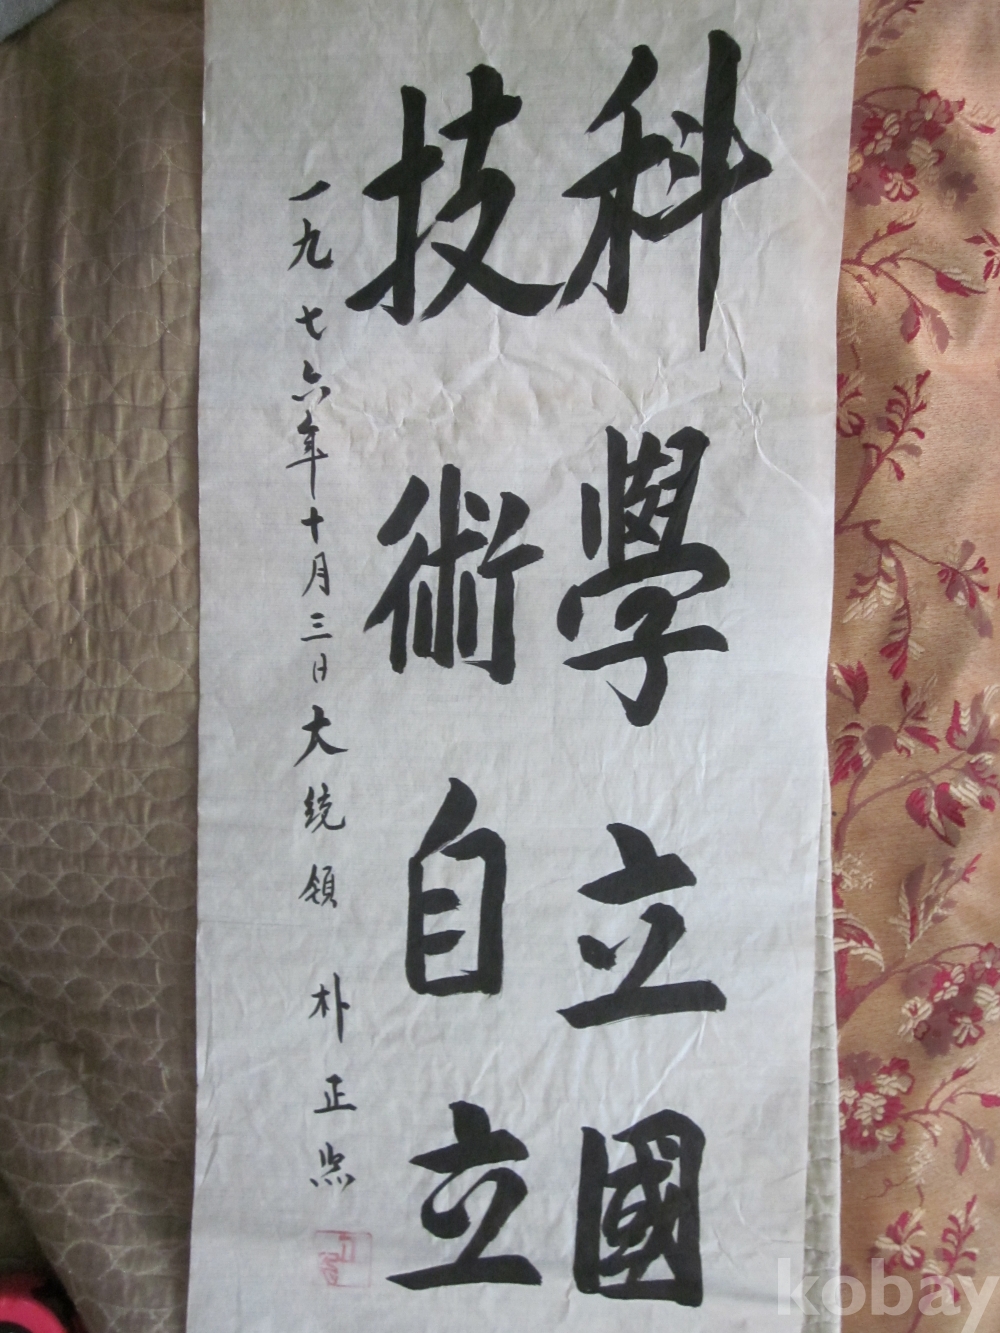 科學立國
技術自立
一九七六年十月三日大統領 朴正熙
kobay